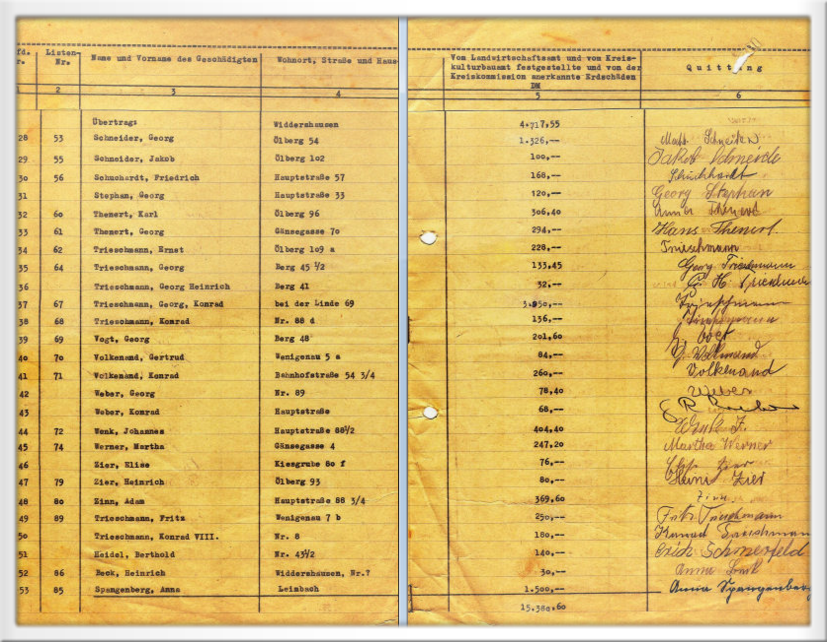 fd. Listen- Name und Vorname des Geschädigten Wohnort, Straße und Haus- Vom Landwirtschaftsamt und vom Kreis-
r. Nr. kulturbauamt festgestellte und von der Quittung
Kreiskommission anerkannte Erdschäden
DM
1 2 3 4 5 6
Übertrag: Widdershausen 4.717,55
28 53 Schneider, Georg Ölberg 54 1.326,--
29 55 Schneider, Jakob Ölberg 102 100,-- Jakob Schneider
30 56 Schuchardt, Friedrich Hauptstraße 57 168,-- Schuchhardt
31 Stephan, Georg Hauptstraße 33 120,-- Georg Stephan
32 60 Thenert, Karl Ölberg 96 306,40
33 61 Thenert, Georg Gänsegasse 70 294,-- Hans Thenert
34 62 Trieschmann, Ernst Ölberg 109 a 228,-- Trieschmann
35 64 Trieschmann, Georg Berg 45 1/2 133,45 Georg Trieschmann
36 Trieschmann, Georg Heinrich Berg 41 32,--
37 67 Trieschmann, Georg, Konrad bei der Linde 69 3.950,-- Trieschmann
38 68 Trieschmann, Konrad Nr. 88 d 136,--
39 69 Vogt, Georg Berg 48 201,60
40 70 Volkenand, Gertrud Wenigenau 5 a 84,--
41 71 Volkenand, Konrad Bahnhofstraße 54 3/4 260,-- Volkenand
42 Weber, Georg Nr. 89 78,40 Weber
43 Weber, Konrad Hauptstraße 68,--
44 72 Wenk, Johannes Hauptstraße 881/2 404,40
45 74 Werner, Martha Gänsegasse 4 247,20 Martha Werner
46 Zier, Elise Kiesgrube 80 f 76,--
47 79 Zier, Heinrich Ölberg 93 80,-- Zier
48 80 Zinn, Adam Hauptstraße 88 3/4 369,60 Zinn
49 89 Trieschmann, Fritz Wenigenau 7 b 250,-- Fritz Trieschmann
50 Trieschmann, Konrad VIII. Nr. 8 180,--
51 Heidel, Berthold Nr. 43½ 140,-- Erich Schönerfeld
52 86 Beck, Heinrich Widdershausen, Nr.7 30,--
53 85 Spangenberg, Anna Leimbach 1.500,-- Anna Spangenberg
15.380,60